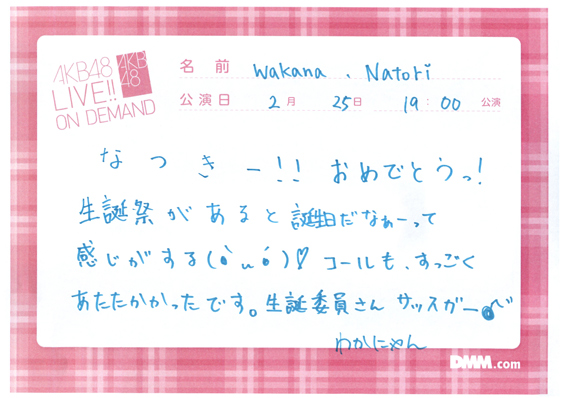 AKB48
LIVE!!
ON DEMAND
AKB
48
名前 Wakana、Natori
公演日 2月 25日 19:00 公演
なつきー!! おめでとうっ!
生誕祭があると誕生日だなぁーって
感じがする(òuó)♡ コールも、すっごく
あたたかかったです。生誕委員さん サッスガー
わかにゃん
DMM.com